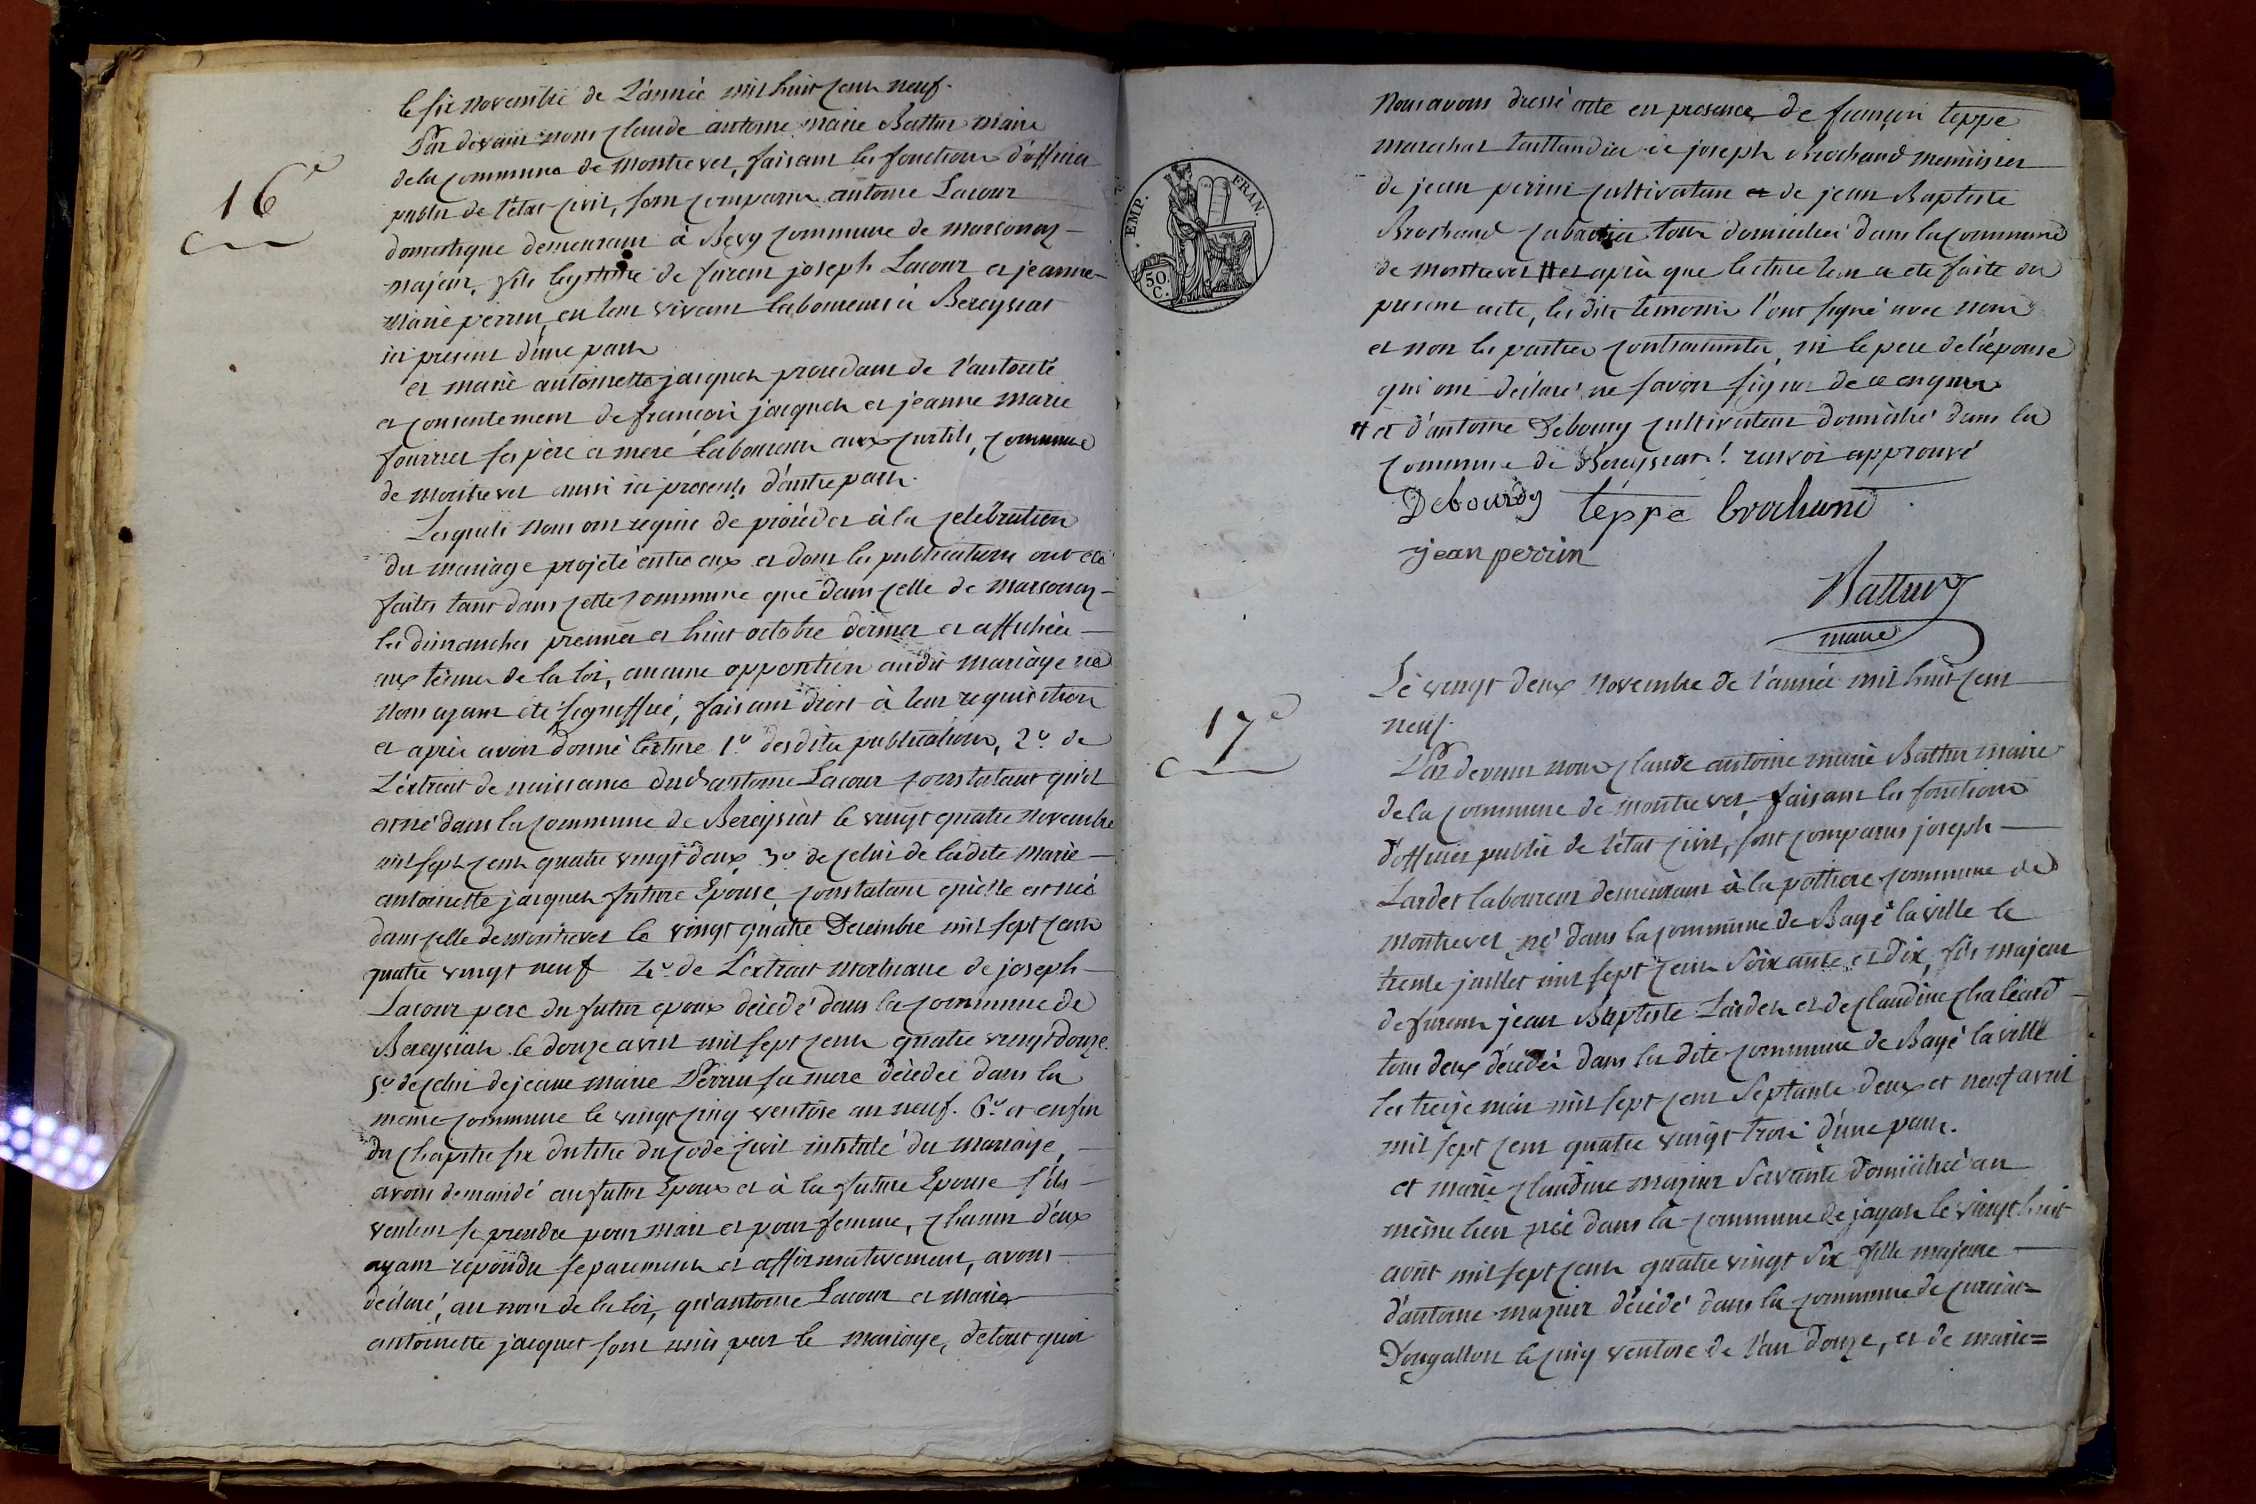 16e
le six novembre de L'année mil huit cent neuf.
Par devant nous Claude antoine marie Battur maire
de la commune de montrevel, faisant les fonctions d'officier
public de l'état civil, sont comparus antoine Lacour
domestique demeurant à Bevy commune de marsonnaz
majeur, fils légitime de furent joseph Lacour et jeanne
marie perrin, en leur vivant laboureurs à Bereysiat
ici présent d'une part
et marie antoinette jacquet procedant de l'autorité
et consentement de françois jacquet et jeanne marie
fournier ses père et mere laboureurs aux curtils, commune
de montrevel aussi ici presents d'autre part.
Lesquels nous ont requis de procéder à la celebration
du mariage projeté entre eux et dont les publications ont été
faites tant dans cette commune que dans celle de marsonnaz
les dimanches premier et huit octobre dernier et affichées
aux termes de la loi, aucune opposition audit mariage ne
nous ayant été signiffiée, faisant droit à leur requisition
et après avoir donné lecture 1o desdites publications, 2o de
L'extrait de naissance dud antoine Lacour constatant qu'il
est né dans la commune de Bereysiat le vingt quatre novembre
mil sept cent quatre vingt deux 3o de celui de ladite marie
antoinette jacquet future Epouse, constatant qu'elle est née
dans celle de montrevel le vingt quatre Decembre mil sept cent
quatre vingt neuf 4o de L'extrait mortuaire de joseph
Lacour pere du futur epoux décédé dans la commune de
Bereysiat le douze avril mil sept cent quatre vingt douze
5o de celui de jeanne marie Perrin sa mere décédée dans la
meme commune le vingt cinq ventose an neuf. 6o et enfin
du chapitre six du titre du code civil intitulé du mariage,
avons demandé au futur Epoux et à la future Epouse s'ils
veulent se prendre pour mari et pour femme, chacun d'eux
ayant répondu separement et affirmativement, avons
déclaré, au nom de la loi, qu'antoine Lacour et marie
antoinette jacquet sont unis par le mariage, de tout quoi
EMP. FRAN.
50 C.
Nous avons dressé acte en presence de françois teppe
marechal taillandier de joseph Brochand menuisier
de jean perrin cultivateur et de jean Baptiste
Brochand cabaretier tous domiciliés dans la commune
de montrevel # et après que lecture leur a eté faite du
present acte, les dits temoins l'ont signé avec nous
et non les parties contractantes, ni le pere de l'épouse
qui ont déclaré ne savoir signer de ce enquis
# et d'antoine Debourg cultivateur domicilié dans la
commune de Bereysiat! renvoi approuvé
Debourdg teppe brochand
jean perrin
Battur
maire
17e
Le vingt deux Novembre de l'année mil huit cent
neuf.
Par devant nous Claude antoine marie Battur maire
de la commune de montrevel, faisant les fonctions
d'officier public de l'état civil, sont comparus joseph
Lardet laboureur demeurant à la pothiere commune de
montrevel né dans la commune de Bagé la ville le
trente juillet mil sept cent soixante et dix, fils majeur
de furent jean Baptiste Lardet et de Claudine chaléard
tous deux décédés dans la dite commune de Bagé la ville
les treize mai mil sept cent septante deux et neuf avril
mil sept cent quatre vingt trois d'une part.
et marie claudine mazuir servante domiciliée au
même lieu née dans la commune de jayat le vingt huit
août mil sept cent quatre vingt six fille majeure
d'antoine mazuir décédé dans la commune de curciat=
Dongallon le cinq ventose de l'an douze, et de marie=